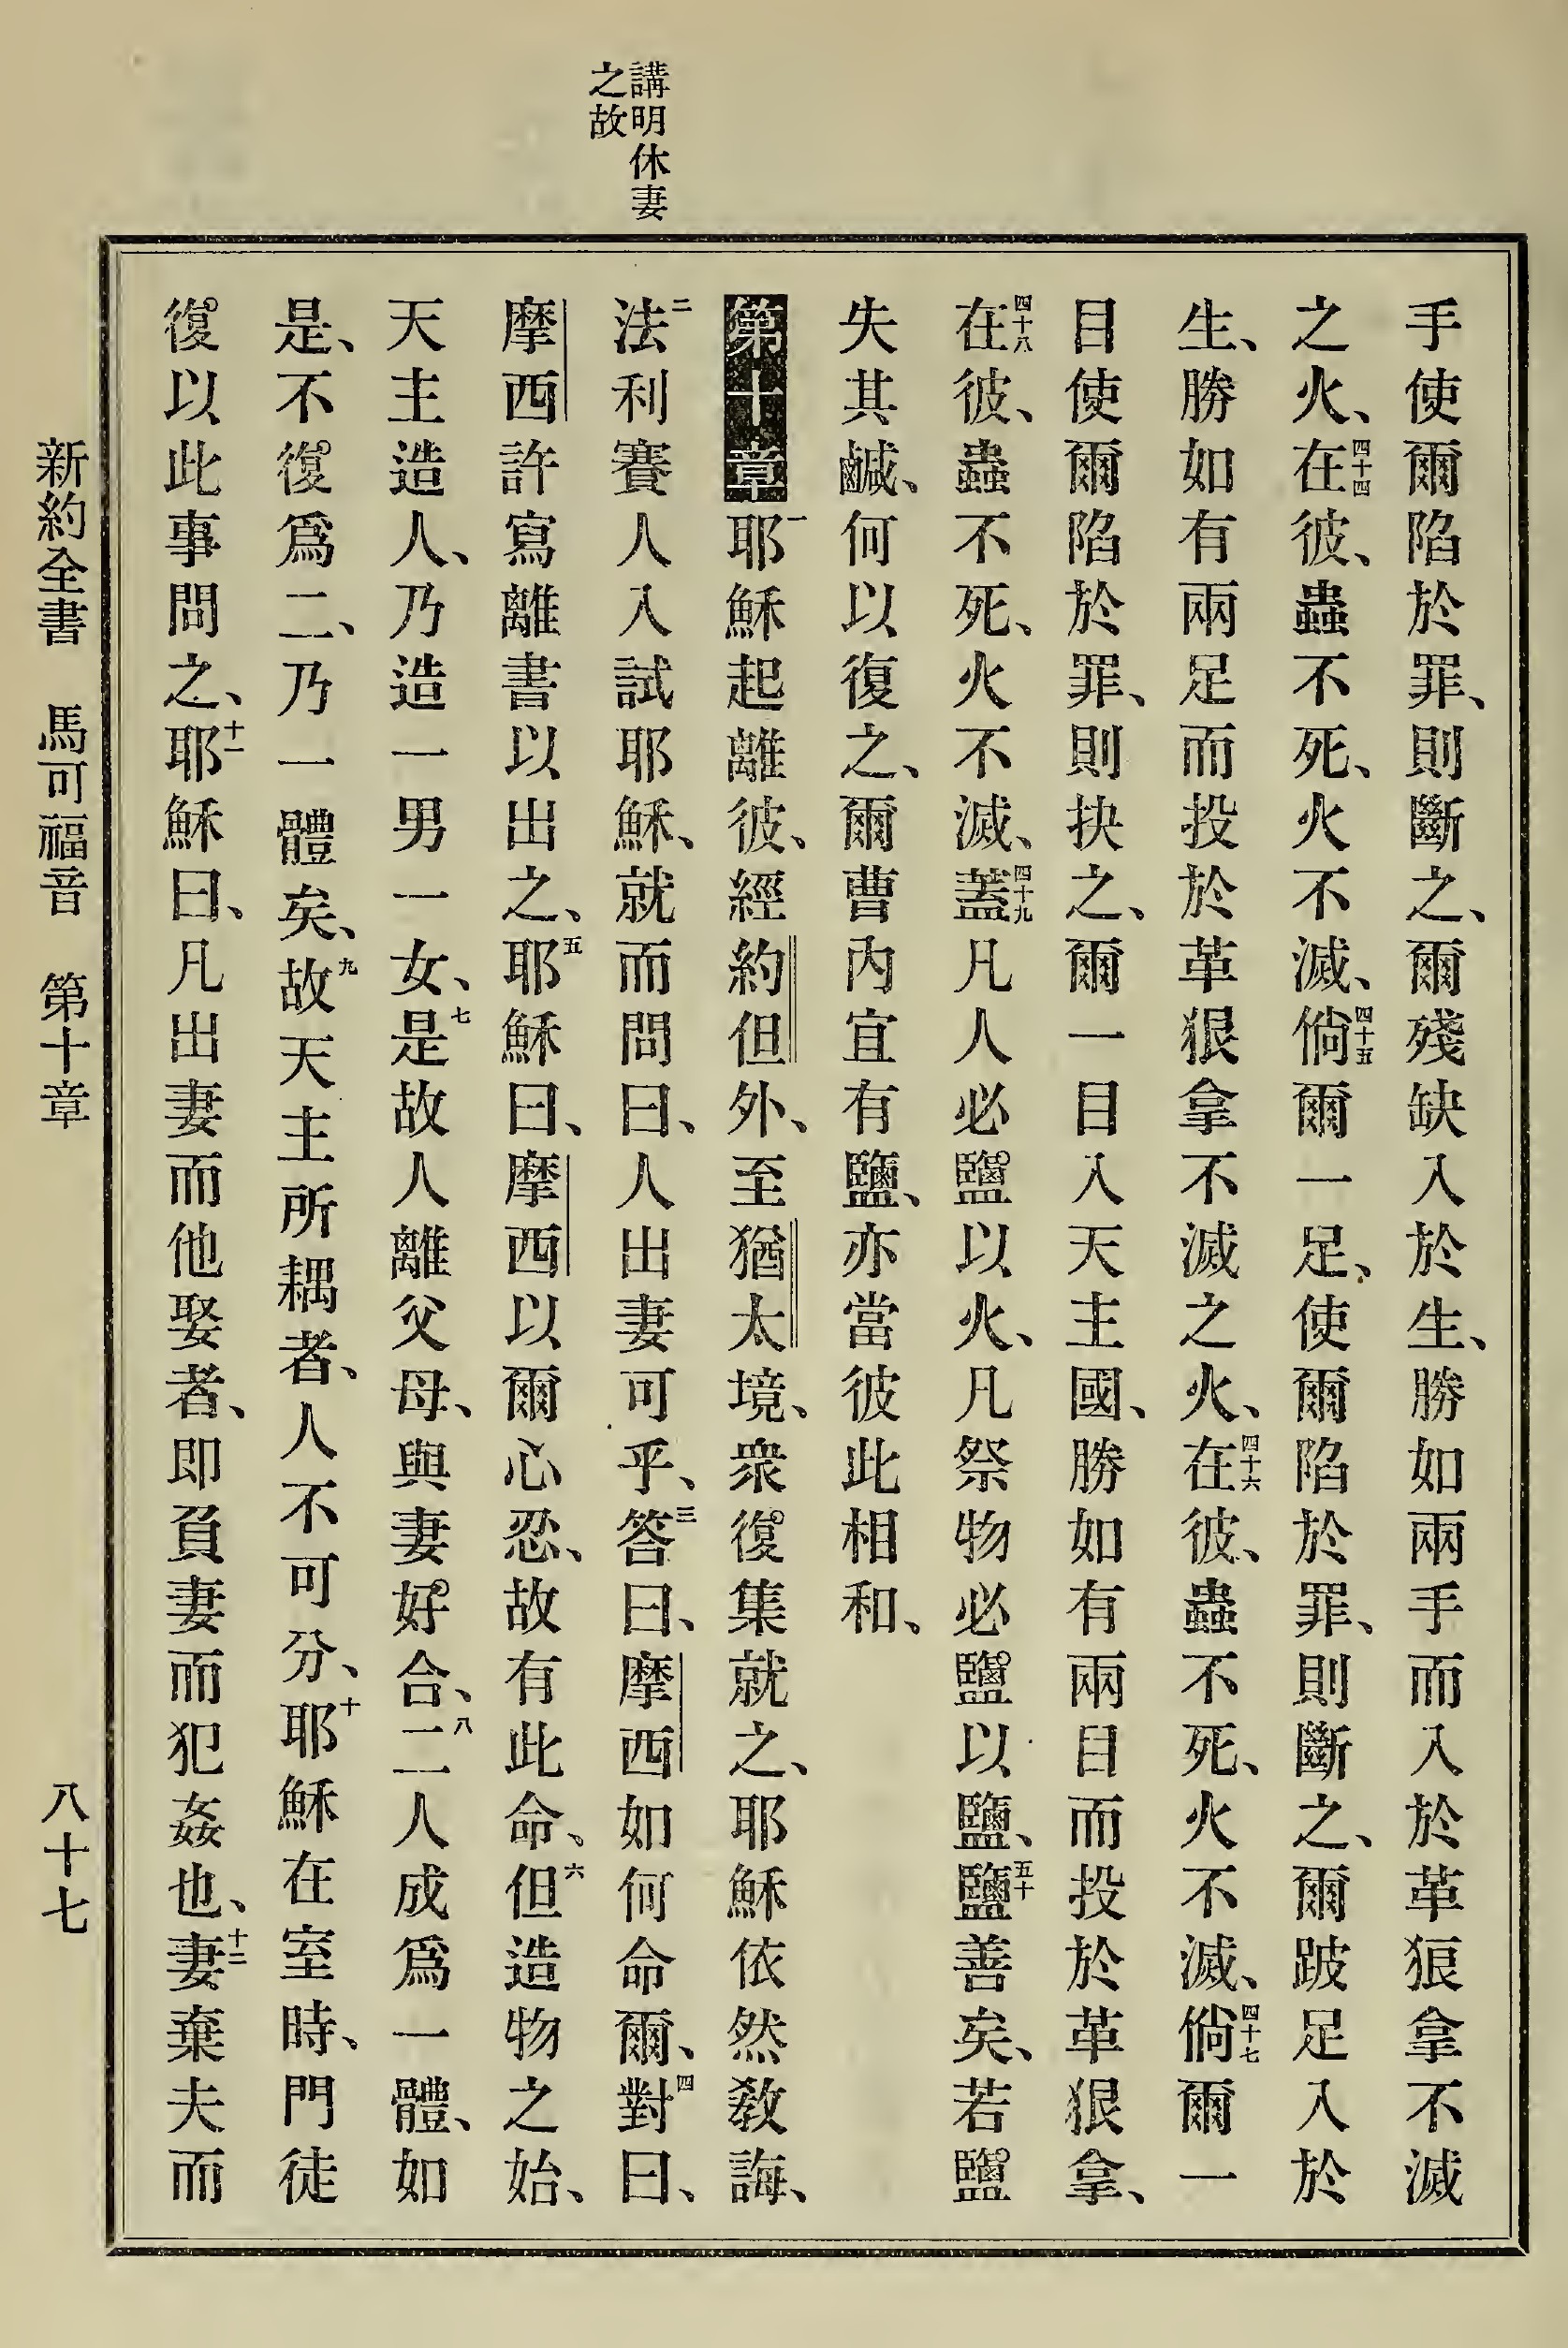 講明休妻
之故
手使爾陷於罪、則斷之、爾殘缺入於生、勝如兩手而入於革狠拿不滅
之火、四十四在彼、蟲不死、火不滅、四十五倘爾一足、使爾陷於罪、則斷之、爾跛足入於
生、勝如有兩足而投於革狠拿不滅之火、四十六在彼、蟲不死、火不滅、四十七倘爾一
目使爾陷於罪、則抉之、爾一目入天主國、勝如有兩目而投於革狠拿、
四十八在彼、蟲不死、火不滅、四十九蓋凡人必鹽以火、凡祭物必鹽以鹽、五十鹽善矣、若鹽
失其鹹、何以復之、爾曹內宜有鹽、亦當彼此相和、
第十章一耶穌起離彼、經約但外、至猶太境、衆復集就之、耶穌依然教誨、
二法利賽人入試耶穌、就而問曰、人出妻可乎、三答曰、摩西如何命爾、四對曰、
摩西許寫離書以出之、五耶穌曰、摩西以爾心忍、故有此命、六但造物之始、
天主造人、乃造一男一女、七是故人離父母、與妻好合、八二人成爲一體、如
是、不復爲二、乃一體矣、九故天主所耦者、人不可分、十耶穌在室時、門徒
復以此事問之、十一耶穌曰、凡出妻而他娶者、即負妻而犯姦也、十二妻棄夫而
新約全書 馬可福音 第十章 八十七